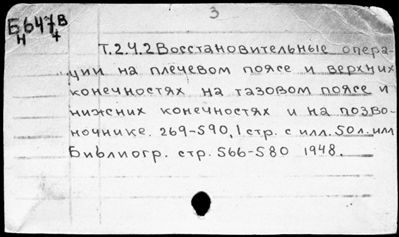 3
Б647в
н +
Т.2.Ч.2 Восстановительные опера-
ции на плечевом поясе и верхних
конечностях на тазовом поясе и
нижних конечностях и на позво-
ночнике. 269-590, 1 стр. с илл. 50 л. илл
Библиогр. стр. 566-580 1948.